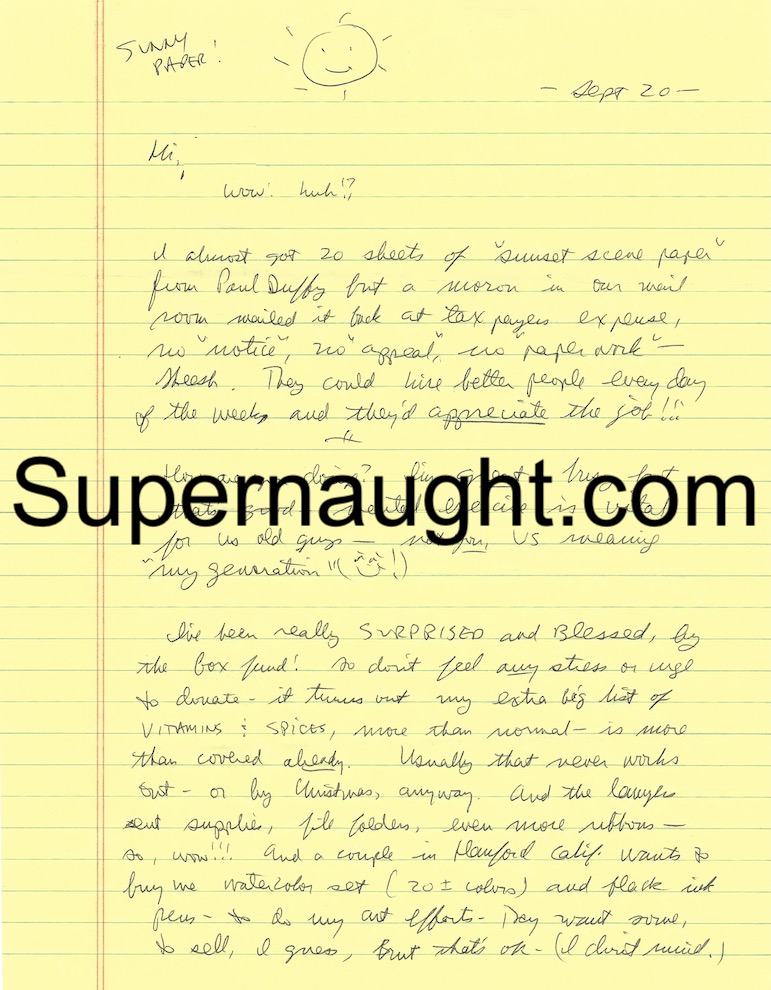 SUNNY
PAPER!
- Sept 20 -
Hi,
wow! huh!?
I almost got 20 sheets of "sunset scene paper"
from Paul Duffy but a moron in our mail
room mailed it back at tax payers expense,
no "notice", no "appeal", no "paperwork" -
Sheesh. They could hire better people every day
of the week, and they'd appreciate the job!!!
How are you doing? I'm great. Busy but
Supernaught.com
that's good - mental exercise is vital
for us old guys - not you, US meaning
"my generation" (!)
I've been really SURPRISED and Blessed, by
the box fund! So don't feel any stress or urge
to donate - it turns out my extra big list of
VITAMINS & SPICES, more than normal - is more
than covered already. Usually that never works
out - or by Christmas, anyway. And the lawyers
sent supplies, file folders, even more ribbons -
so, wow!!! And a couple in Hanford Calif. wants to
buy me watercolor set (20± colors) and black ink
pens - to do my art efforts - They want some,
to sell, I guess, But that's ok - (I don't mind.)